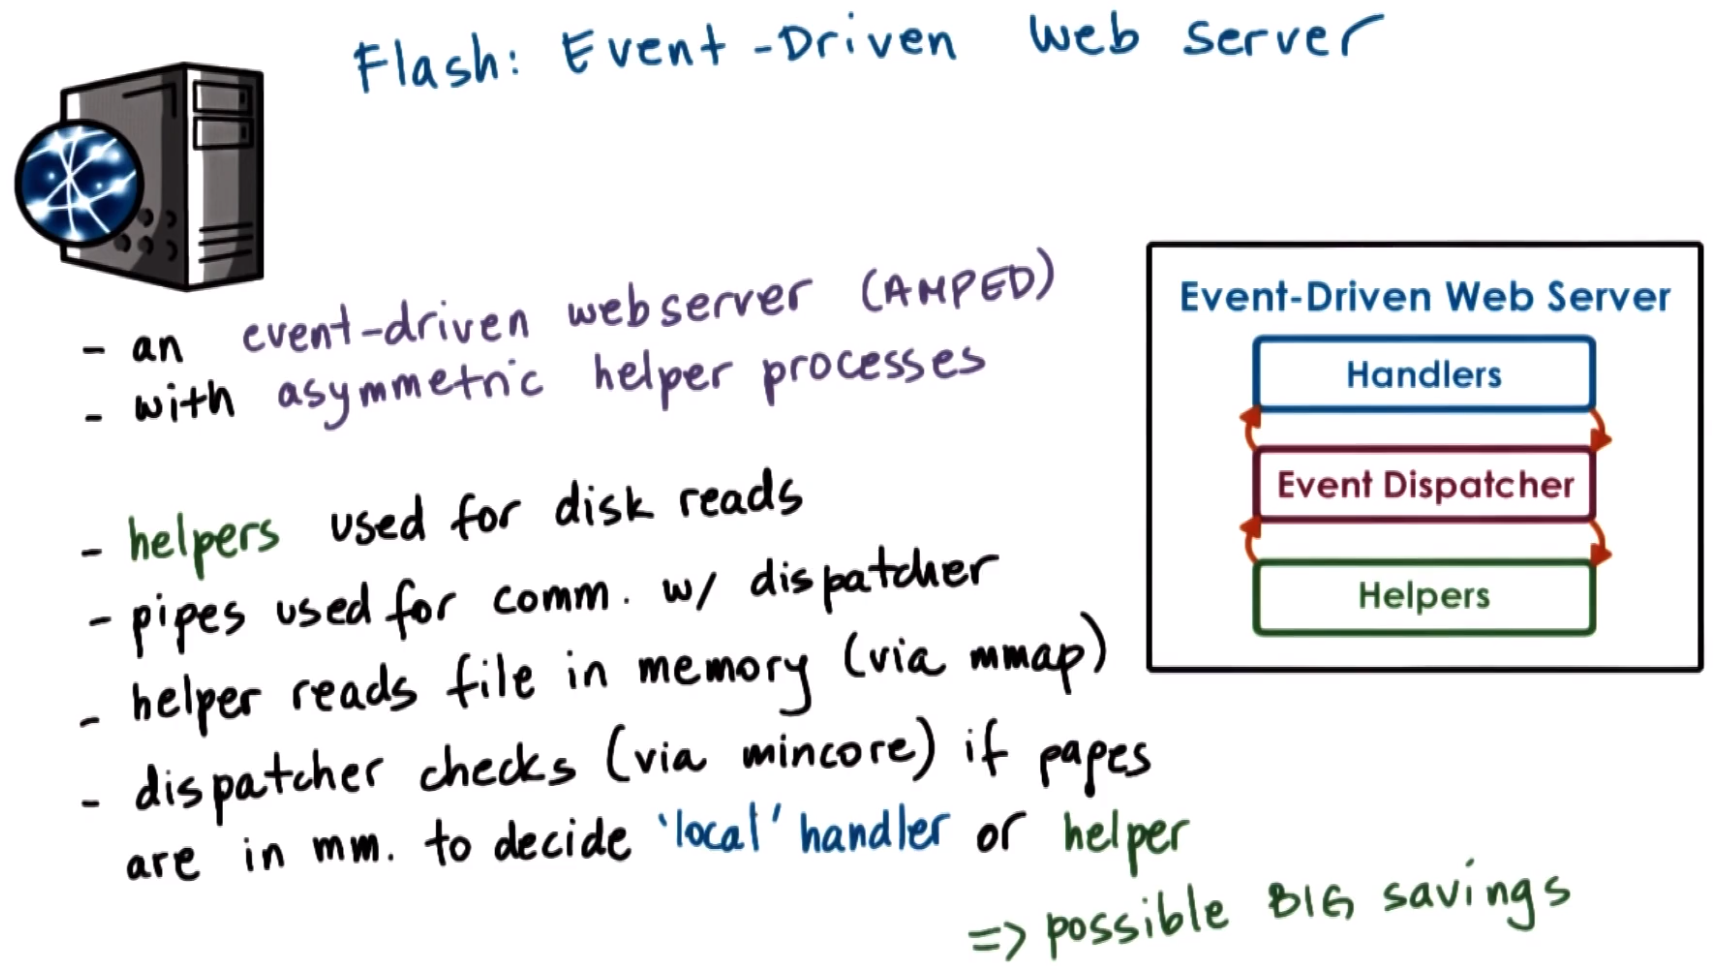 Flash: Event-Driven Web Server
- an event-driven webserver (AMPED)
- with asymmetric helper processes
- helpers used for disk reads
- pipes used for comm. w/ dispatcher
- helper reads file in memory (via mmap)
- dispatcher checks (via mincore) if pages
are in mm. to decide 'local' handler or helper
=> possible BIG savings
Event-Driven Web Server
Handlers
Event Dispatcher
Helpers